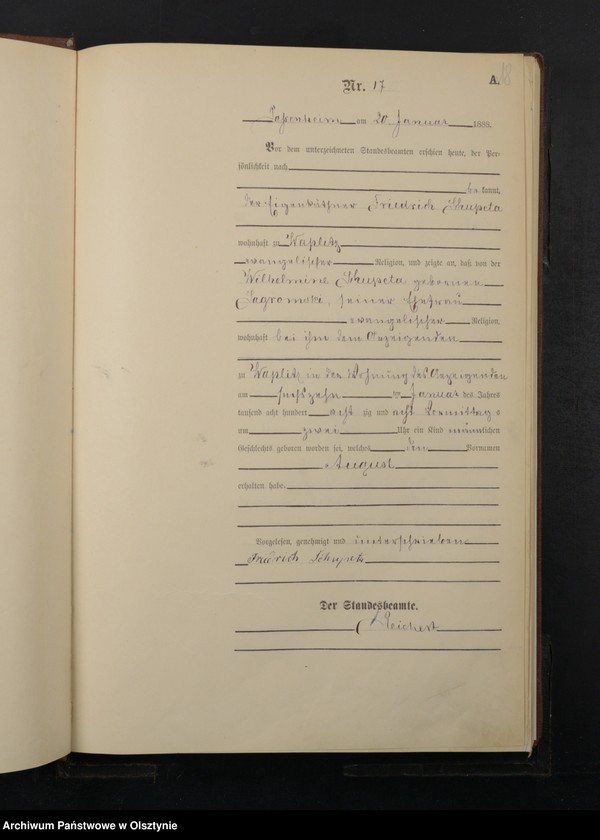 18
A.
Nr. 17
Passenheim am 20 Januar 1888.
Vor dem unterzeichneten Standesbeamten erschien heute, der Per-
sönlichkeit nach
be kannt,
der Eigenkäthner Friedrich
wohnhaft zu Waplitz
evangelischer Religion, und zeigte an, daß von der
Wilhelmine geborenen
Jagromski, seiner Ehefrau
evangelischer Religion,
wohnhaft bei ihm dem Anzeigenden
zu Waplitz in der Wohnung des Anzeigenden
am fünfzehn ten Januar des Jahres
tausend acht hundert acht zig und acht Vormittags
um zwei Uhr ein Kind männlichen
Geschlechts geboren worden sei, welches den Vornamen
August
erhalten habe.
Vorgelesen, genehmigt und unterschrieben
Der Standesbeamte.
Reichert
Archiwum Państwowe w Olsztynie